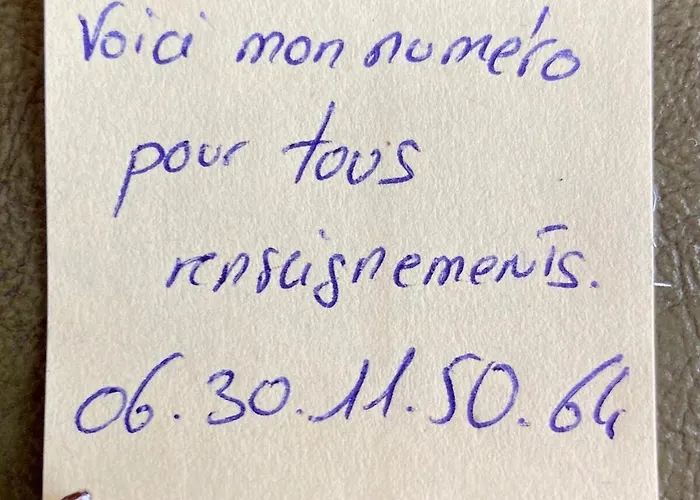 Voici mon numéro
pour tous
renseignements.
06.30.11.50.64